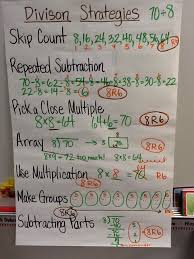 Divison Strategies 70÷8
Skip Count 8,16,24,32,40,48,56,64
1 2 3 4 5 6 7 8
8R6
Repeated Subtraction
70-8=62-8=54-8=46-8=38-8=30-8=22
22-8=14-8=6 8R6
Pick a Close Multiple
8×8=64 64+6=70 8R6
Array 8)70 8R6
8×9=72 too much! 8×8=64
Use Multiplication 8× =70 8R6
Make Groups
8R6
Subtracting Parts 8)70 8R6